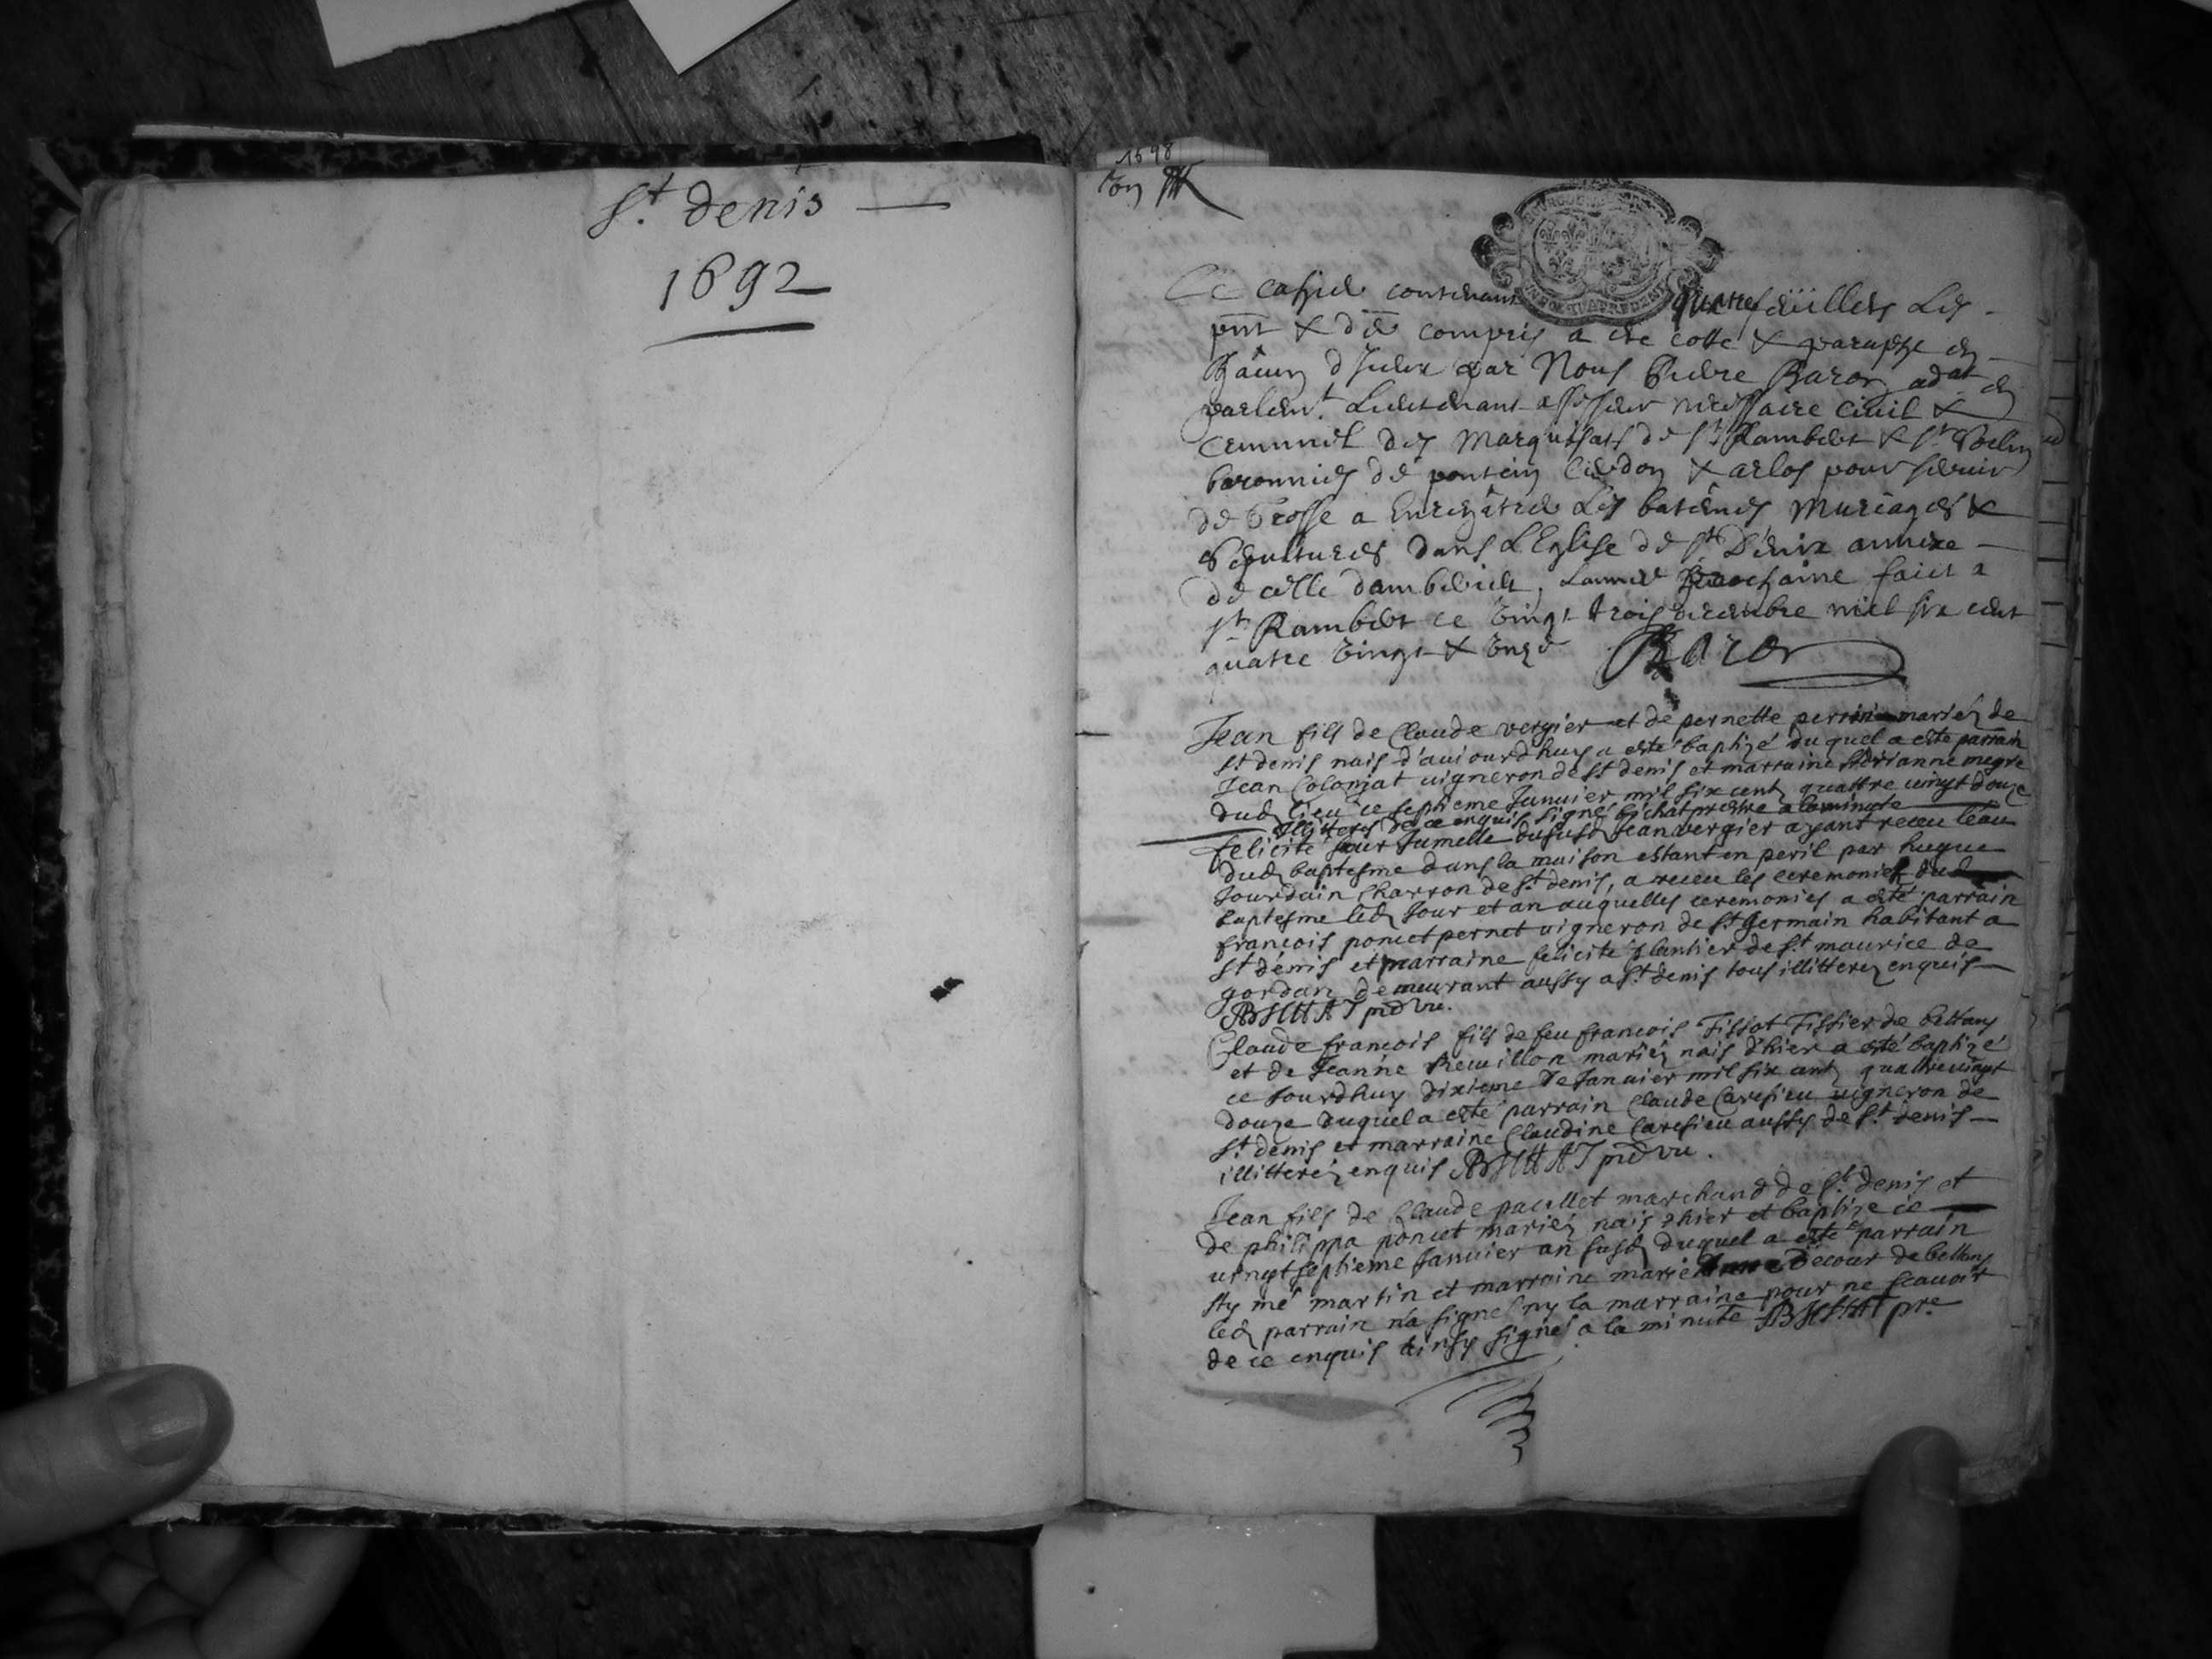 St denis
1692
1698
Ce cahier contenant quatre feuillets les
pnt & der compris a ete cotte & paraphe en
par Nous Baron adat en
parlemt Lieutenant assesseur necessaire civil &
criminel des Marquisats de st Rambert & st
baronnies de poncin Cerdon & arlos pour servir
de Grosse a Enregistrer Les batemes Mariages &
Sepultures dans LEglise de st Denis annexe
de celle damberieu, Lannee prochaine faict a
st Rambert ce vingt trois decembre mil six cent
quatre vingt & unze Baron
Jean fils de Claude vergier et de pernette perrin mariez de
st denis nais d'aujourdhuy a esté baptizé duquel a esté parrain
Jean Colomjat vigneron de st denis et marraine
dud lieu ce septieme Januier mil six centz quattre uingt douze
de ce enquis signé bichat prestre a la minute
felicité soeur Jumelle dususd Jean vergier ayant receu leau
dud baptesme dans la maison estant en peril par hugue
Jourdain Charron de st denis, a receu les ceremonies dud
baptesme led Jour et an auquelles ceremonies a esté parrain
francois poncet pernet uigneron de st germain habitant a
st denis et marraine felicité plantier de st maurice de
gordan demeurant aussy a st denis tous illitterez enquis
BICHAT
Claude francois fils de feu francois Tissot Tissier de bettans
et de Jeanne Reuillon mariez nais d'hier a esté baptizé
ce Jourdhuy dixieme de Januier mil six centz quattre uingt
douze duquel a esté parrain Claude Caresieu uigneron de
st denis et marraine Claudine Caresieu aussy de st denis
illitterez enquis BICHAT
Jean fils de Claude pacallet marchand de st denis et
de philippa poncet mariez nais d'hier et baptize ce
uingt septieme Januier an susd duquel a esté parrain
martin et marraine marie Decour de bettans
led parrain n'a signé ny la marraine pour ne scauoir
de ce enquis ainsy signé a la minute BICHAT pre